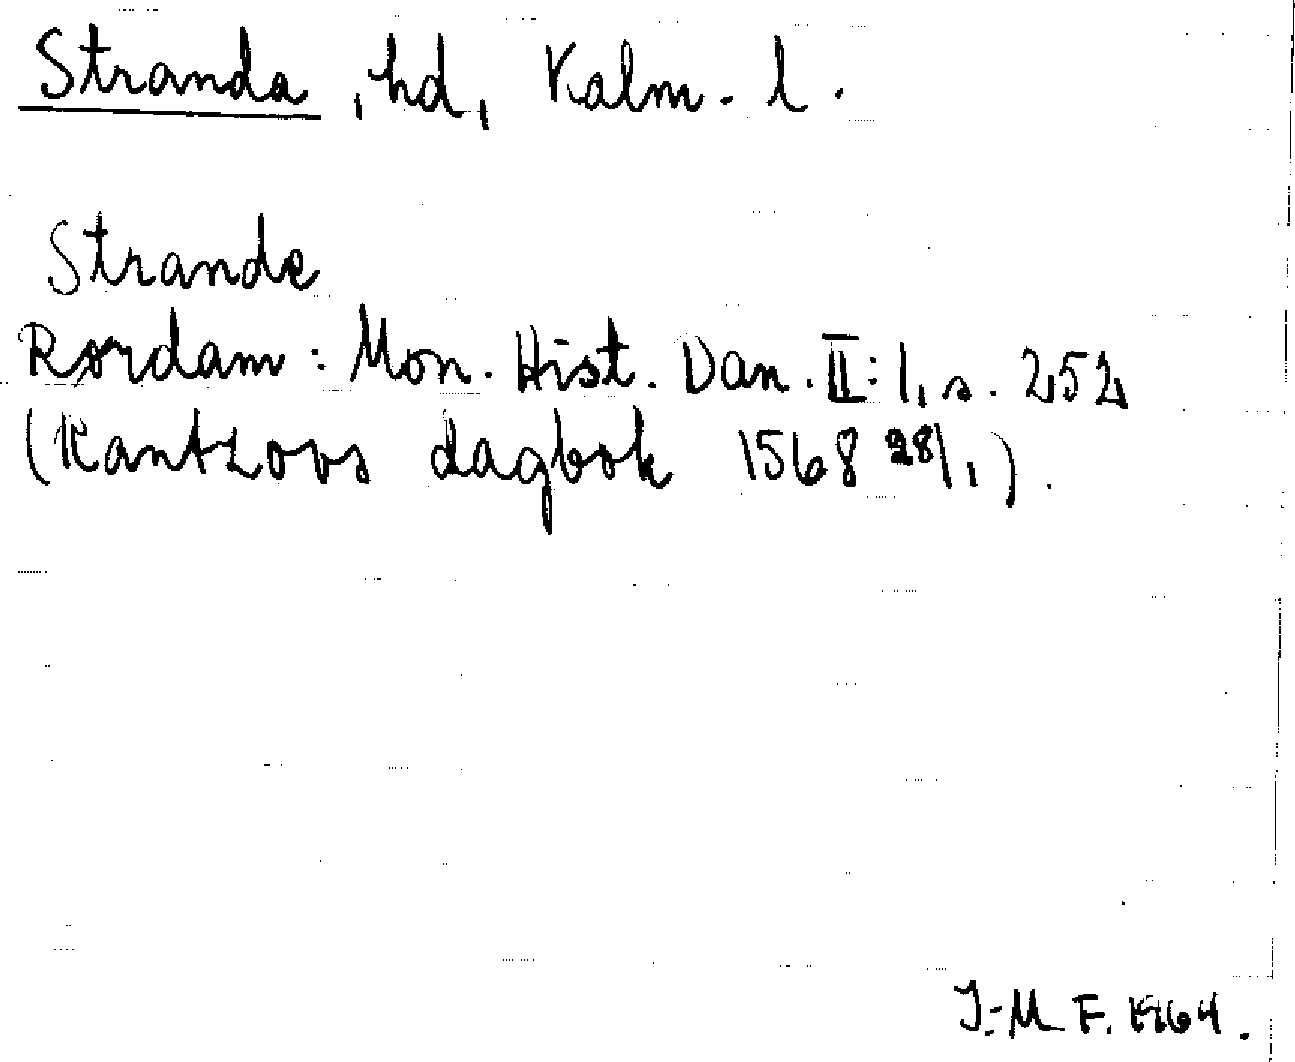 Stranda, hd, Kalm. l.
Strande
Rørdam: Mon. Hist. Dan. II:1, s. 252
(Kantzovs dagbok 1568 28/1).
J.-M. F. 1964.